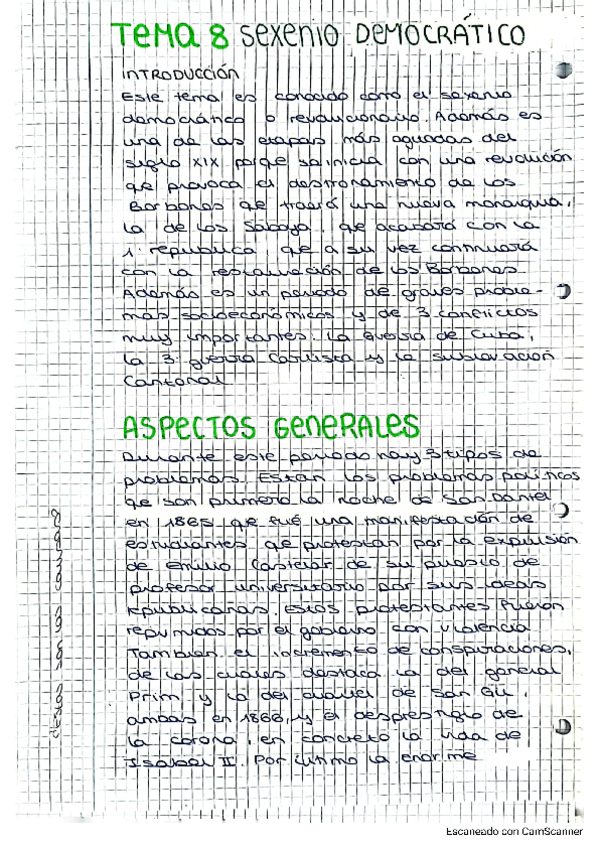 TEMA 8 SEXENIO DEMOCRÁTICO
INTRODUCCIÓN
Este tema es conocido como el sexenio
democrático o revolucionario. Además es
una de las etapas más agudas del
siglo XIX porqe se inicia con una revolución
qe provoca el destronamiento de los
Borbones qe traerá una nueva monarquia,
la de los Saboya, qe acabará con la
1ª republica qe a su vez continuará
con la restauración de los Borbones.
Además es un periodo de graves proble-
mas socioeconómicos y de 3 conflictos
muy importantes: la guerra de Cuba,
la 3ª guerra Carlista y la sublevación
Cantonal
ASPECTOS GENERALES
Durante este periodo hay 3 tipos de
problemas. Están los problemas políticos
qe son primero la noche de San Daniel
en 1865 qe fué una manifestación de
estudiantes qe protestan por la expulsión
de Emilio Castelar de su puesto de
profesor universitario por sus ideas
republicanas. Estos protestantes fueron
reprimidos por el gobierno con violencia
También el incremento de conspiraciones,
de las cuales destaca la del general
Prim y la del cuartel de San Gil,
ambas en 1866, y el desprestigio de
la corona, en concreto la vida de
Isabel II. Por último la enorme
estas son las causas
Escaneado con CamScanner